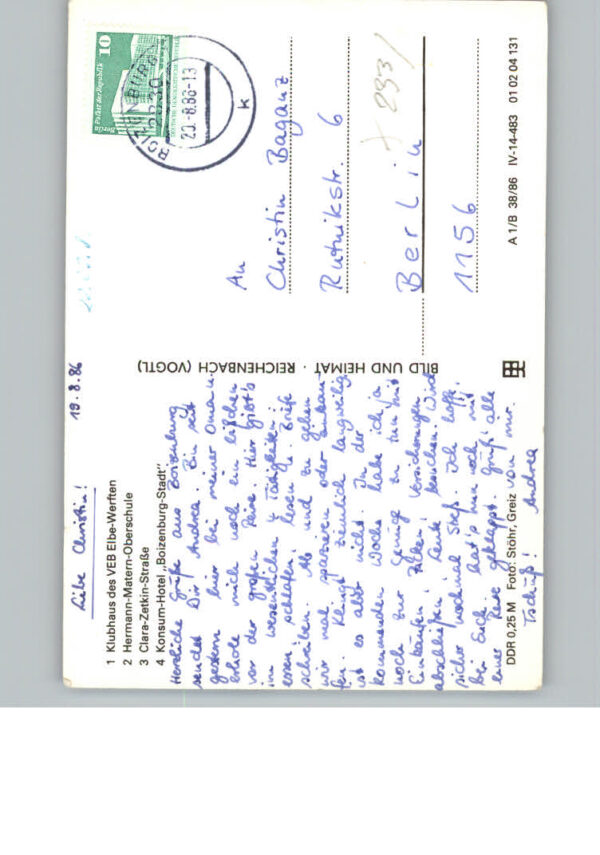 19.8.86
Liebe Christin!
1 Klubhaus des VEB Elbe-Werften
2 Hermann-Matern-Oberschule
3 Clara-Zetkin-Straße
4 Konsum-Hotel „Boizenburg-Stadt"
Herzliche Grüße aus Boizenburg
sendet Dir Andrea. Bin seit
gestern hier bei meiner Oma u.
erhole mich noch ein bißchen
vor der großen Reise. Hier gibt's
im wesentlichen 4 Tätigkeiten:
essen, schlafen, lesen u. Briefe
schreiben. Ab und zu gehen
wir mal spazieren oder einkau-
fen. Klingt ziemlich langweilig,
ist es aber nicht. In der
kommenden Woche habe ich ja
noch zur Genüge zu tun mit
Einkaufen, Zelten, Versicherungen
abschließen, Leute besuchen. Wird
sicher nochmal Streß. Ich hoffe,
bei Euch hat's nun noch mit
einer Reise geklappt. Grüß' alle
von mir.
Tschüß! Andrea
DDR 0,25 M Foto: Stöhr, Greiz
BILD UND HEIMAT · REICHENBACH (VOGTL)
10
Berlin Palast der Republik
DEUTSCHE DEMOKRATISCHE REPUBLIK
BOIZENBURG
2830
20.-8.86-13
k
An
Christin Baganz
Rutnikstr. 6
293/
Berlin
1156
A 1/B 38/86 IV-14-483 01 02 04 131